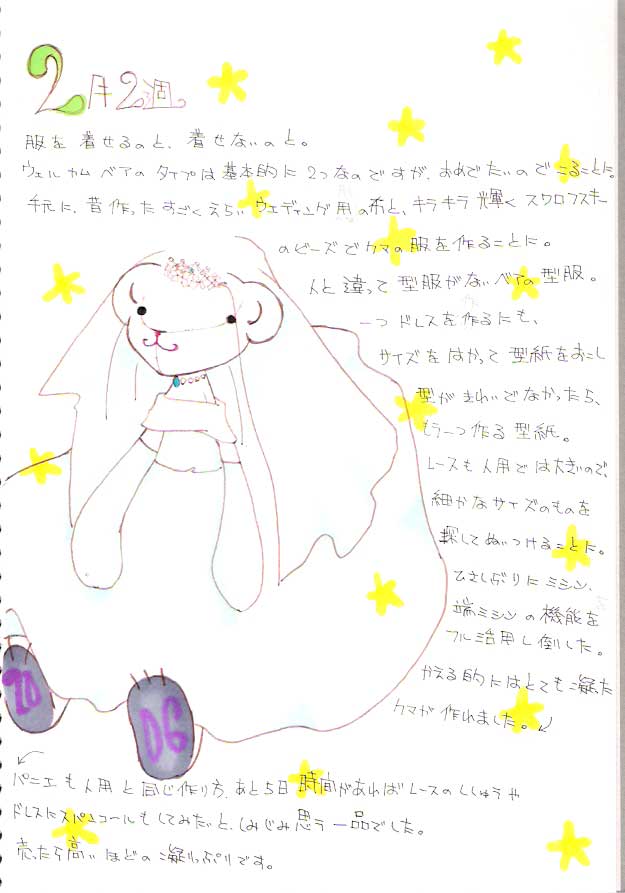 2月2週
服を着せるのと、着せないのと。
ウェルカムベアのタイプは基本的に2つなのですが、おめでたいのでこることに。
手元に、昔作ったすごくえらいウェディング用の布と、キラキラ輝くスワロフスキー
のビーズでクマの服を作ることに。
人と違って型服がないベアの型服。
一つドレスを作るにも、
サイズをはかって型紙をおこし
型がきれいでなかったら、
もう一つ作る型紙。
レースも人用では大きいので、
細かなサイズのものを
探してぬいつけることに。
ひさしぶりにミシン、
端ミシンの機能を
フル活用し倒した。
かえる的にはとても凝った
クマが作れました。
パニエも人用と同じ作り方、あと5日時間があればレースのししゅうや
ドレスにスパンコールもしてみたいと、しみじみ思う一品でした。
売ったら高いほどの凝りっぷりです。
20
06